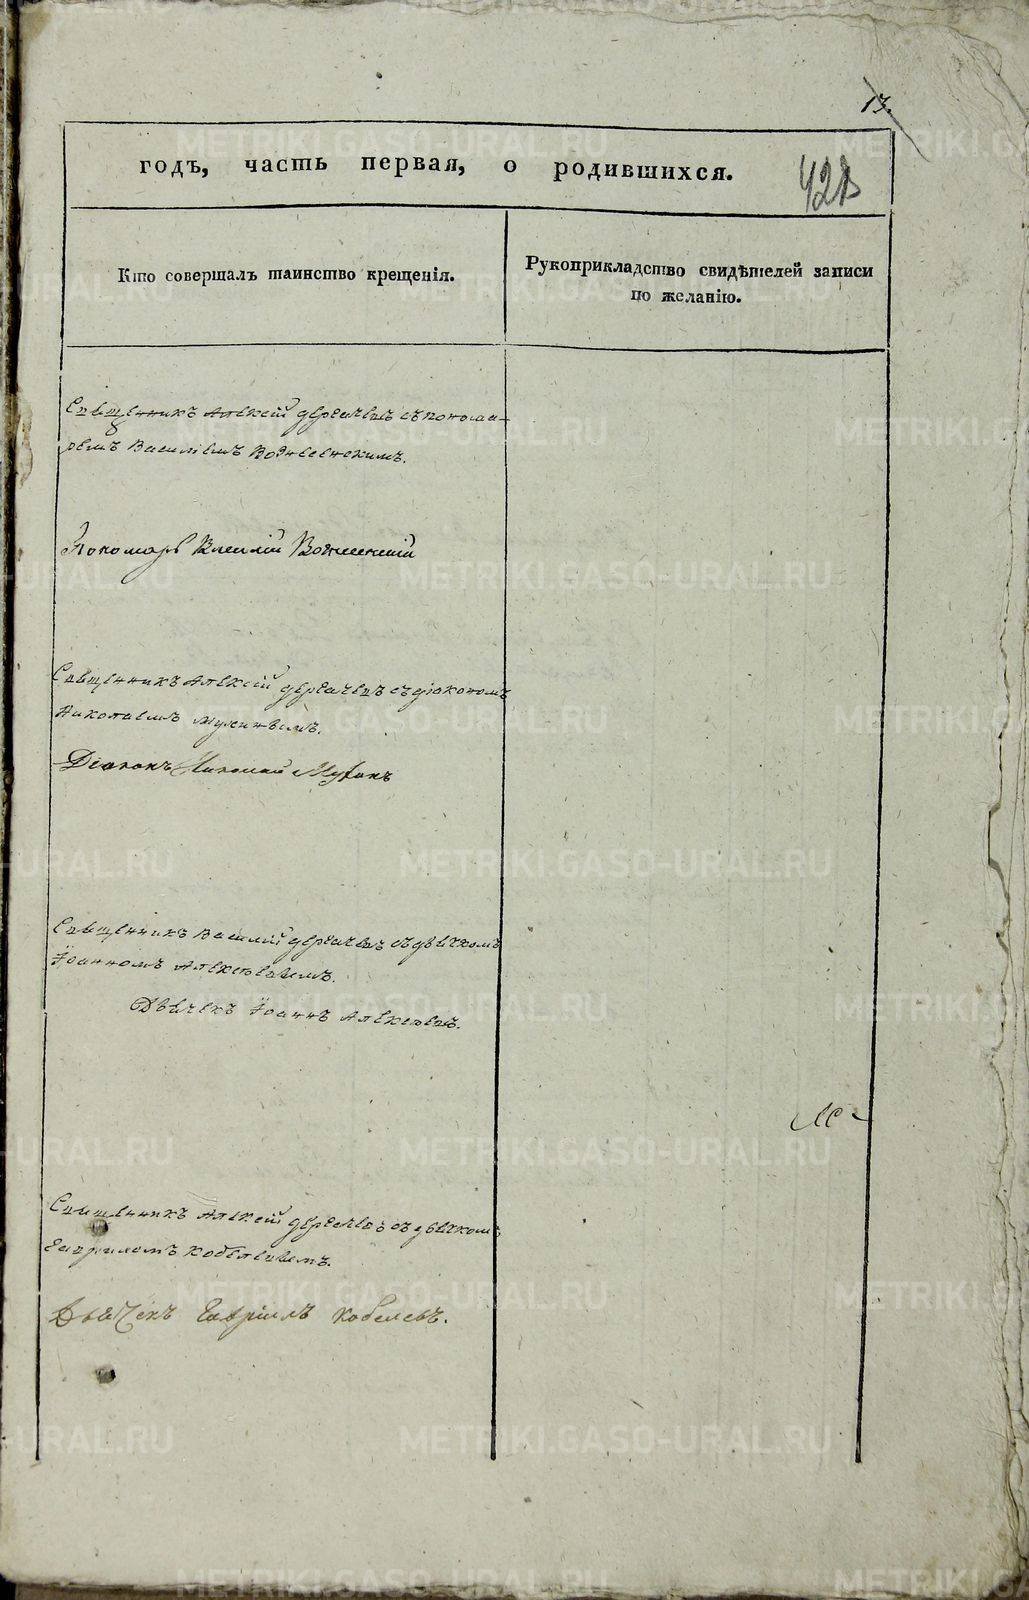 13.
годъ, часть первая, о родившихся.
Кто совершалъ таинство крещенія.
Рукоприкладство свидѣтелей записи
по желанію.
Священникъ Алексій Дергачевъ съ понома-
ремъ Василіемъ Вознесенскимъ.
Пономарь Василій Вознесенскій
Священникъ Алексій Дергачевъ съ діакономъ
Николаемъ
Діаконъ Николай
Священникъ Василій Дергачевъ съ дьячкомъ
Іоанномъ Алексѣевымъ.
Дьячекъ Іоаннъ Алексѣевъ.
Священникъ Алексій Дергачевъ съ дьячкомъ
Гавріиломъ Кобелевымъ.
Дьячекъ Гавріилъ Кобелевъ.
METRIKI.GASO-URAL.RU